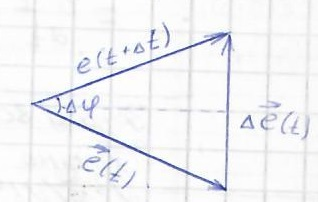 e(t+Δt)
Δφ
Δe⃗(t)
e⃗(t)